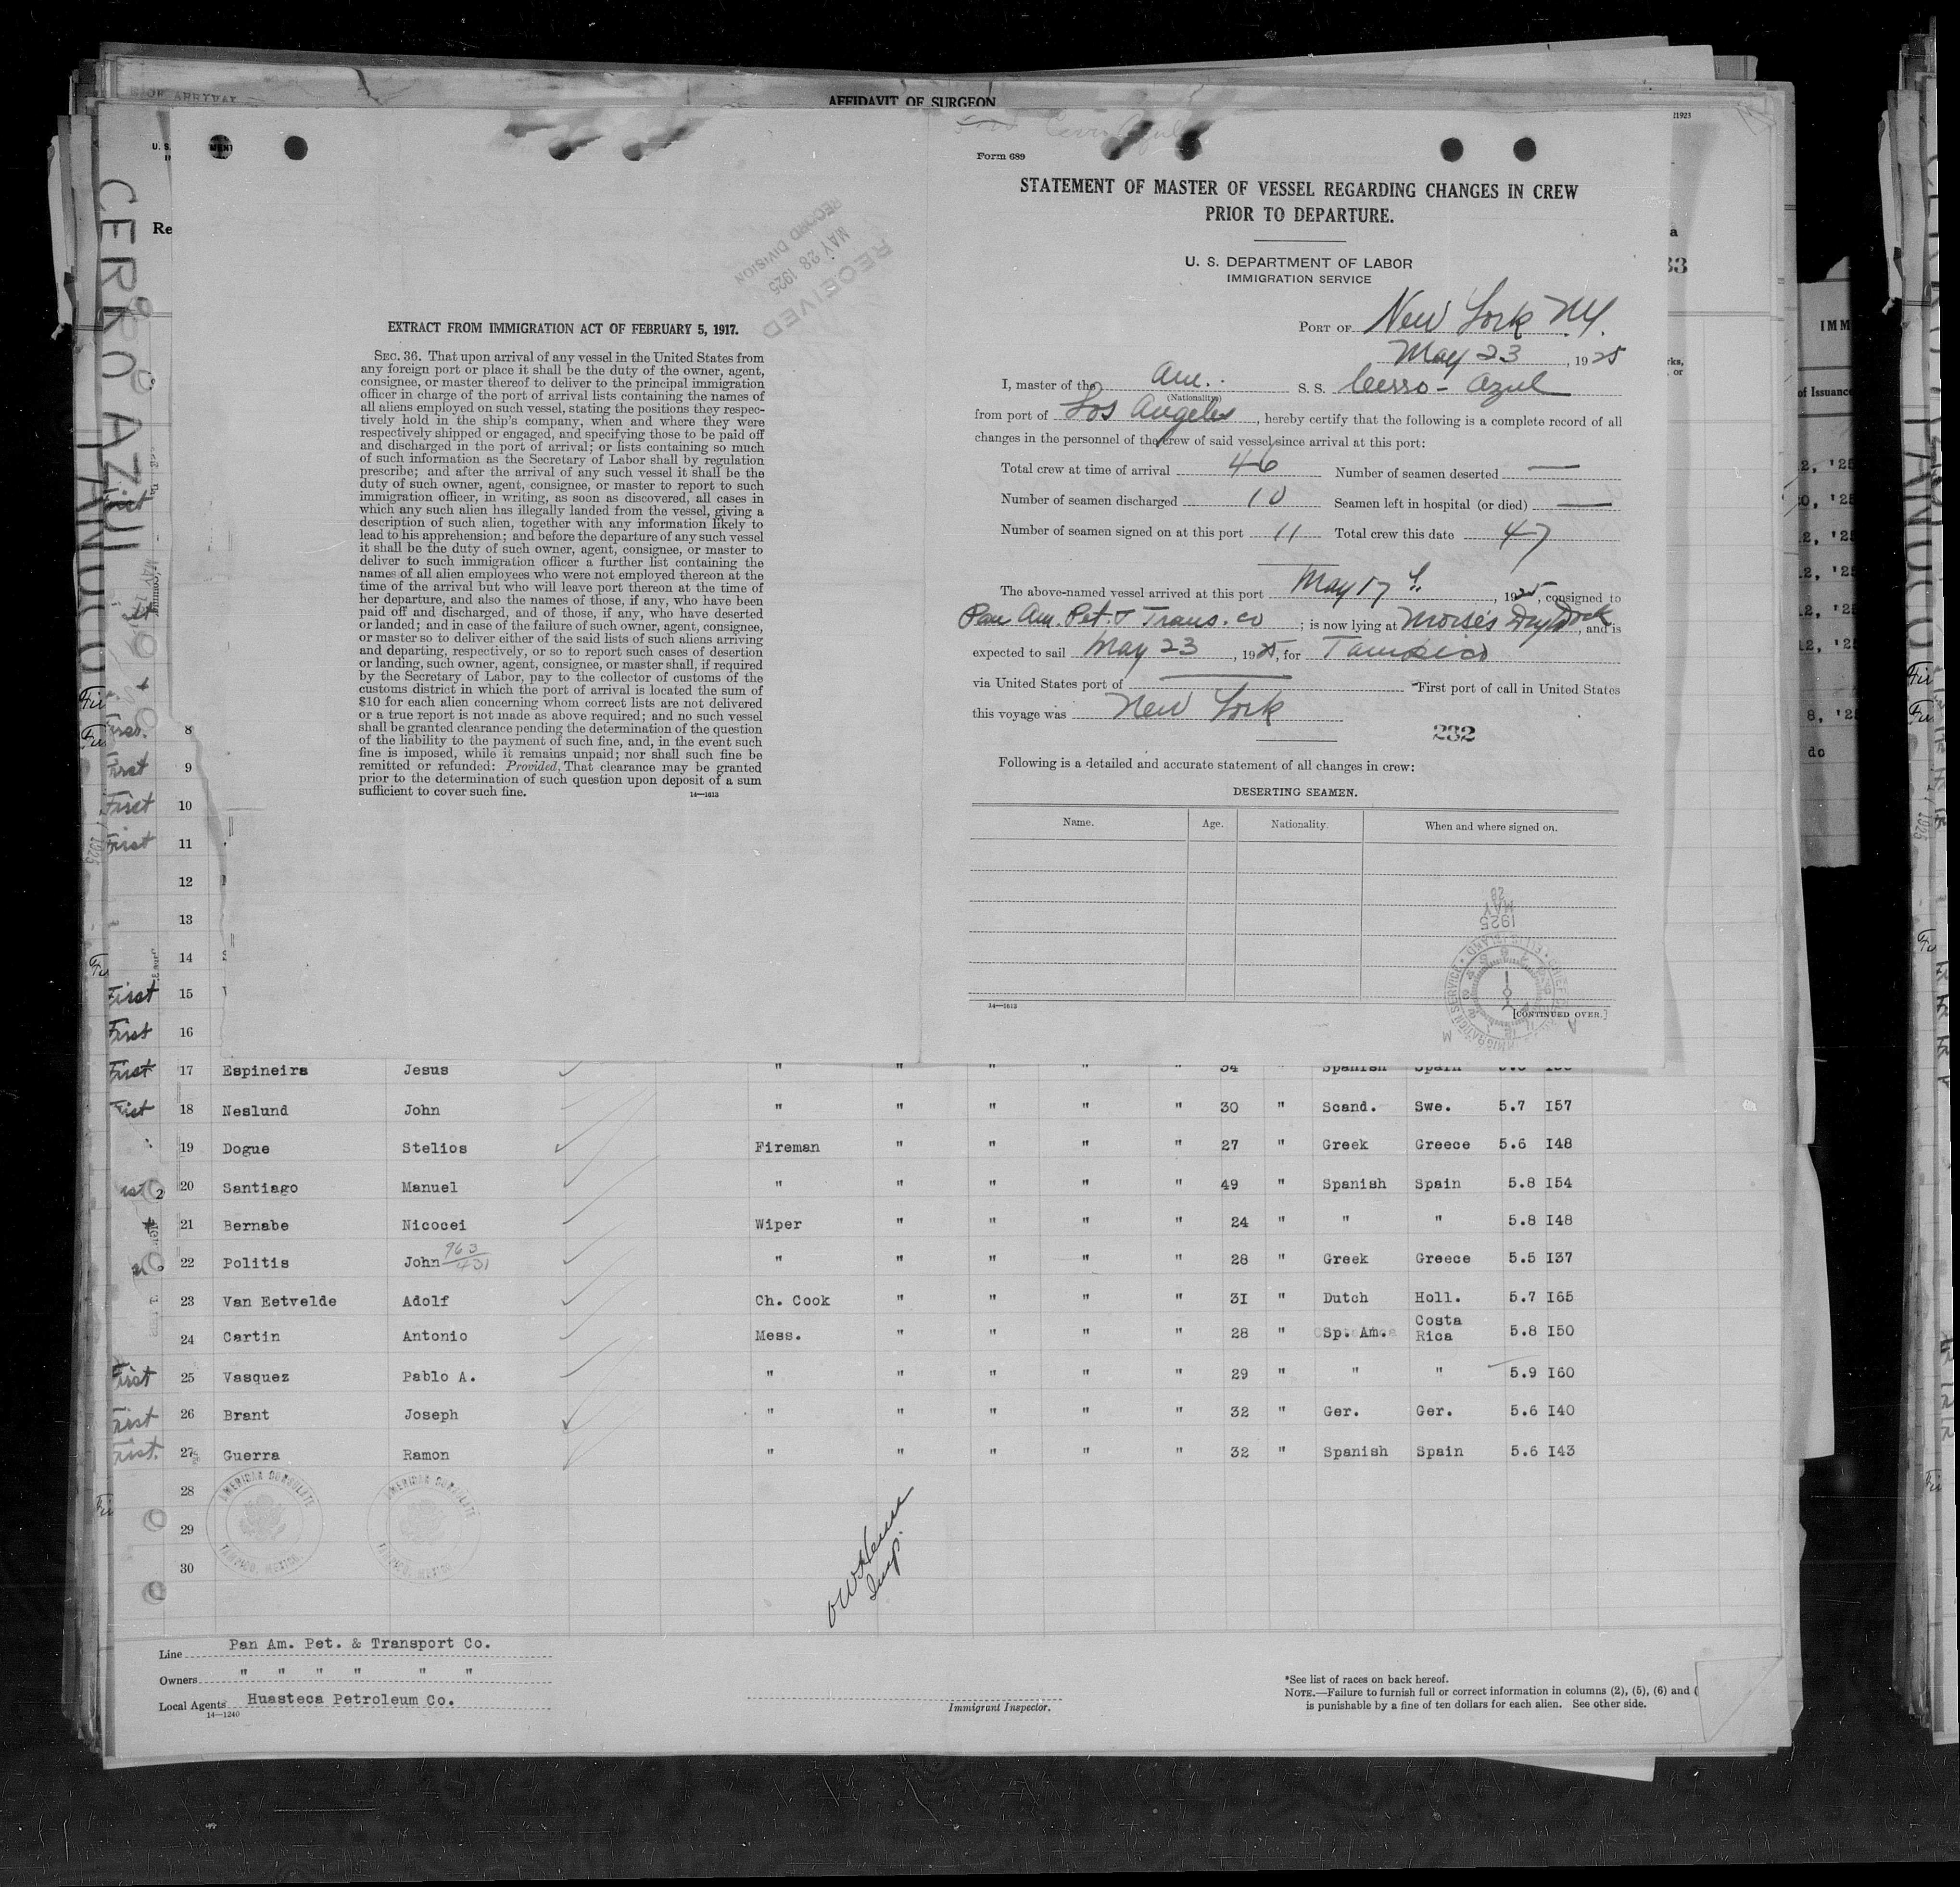 AFFIDAVIT OF SURGEON
11923
CERRO AZUL
Re
RECEIVED
MAY 28 1925
RECORD DIVISION
EXTRACT FROM IMMIGRATION ACT OF FEBRUARY 5, 1917.
SEC. 36. That upon arrival of any vessel in the United States from
any foreign port or place it shall be the duty of the owner, agent,
consignee, or master thereof to deliver to the principal immigration
officer in charge of the port of arrival lists containing the names of
all aliens employed on such vessel, stating the positions they respec-
tively hold in the ship's company, when and where they were
respectively shipped or engaged, and specifying those to be paid off
and discharged in the port of arrival; or lists containing so much
of such information as the Secretary of Labor shall by regulation
prescribe; and after the arrival of any such vessel it shall be the
duty of such owner, agent, consignee, or master to report to such
immigration officer, in writing, as soon as discovered, all cases in
which any such alien has illegally landed from the vessel, giving a
description of such alien, together with any information likely to
lead to his apprehension; and before the departure of any such vessel
it shall be the duty of such owner, agent, consignee, or master to
deliver to such immigration officer a further list containing the
names of all alien employees who were not employed thereon at the
time of the arrival but who will leave port thereon at the time of
her departure, and also the names of those, if any, who have been
paid off and discharged, and of those, if any, who have deserted
or landed; and in case of the failure of such owner, agent, consignee,
or master so to deliver either of the said lists of such aliens arriving
and departing, respectively, or so to report such cases of desertion
or landing, such owner, agent, consignee, or master shall, if required
by the Secretary of Labor, pay to the collector of customs of the
customs district in which the port of arrival is located the sum of
$10 for each alien concerning whom correct lists are not delivered
or a true report is not made as above required; and no such vessel
shall be granted clearance pending the determination of the question
of the liability to the payment of such fine, and, in the event such
fine is imposed, while it remains unpaid; nor shall such fine be
remitted or refunded: Provided, That clearance may be granted
prior to the determination of such question upon deposit of a sum
sufficient to cover such fine.
14—1613
Form 689
STATEMENT OF MASTER OF VESSEL REGARDING CHANGES IN CREW
PRIOR TO DEPARTURE.
U. S. DEPARTMENT OF LABOR
IMMIGRATION SERVICE
PORT OF New York N.Y.
May 23, 1925
I, master of the Am. S. S. Cerro-Azul
(Nationality)
from port of Los Angeles, hereby certify that the following is a complete record of all
changes in the personnel of the crew of said vessel since arrival at this port:
Total crew at time of arrival 46 Number of seamen deserted —
Number of seamen discharged 10 Seamen left in hospital (or died) —
Number of seamen signed on at this port 11 Total crew this date 47
The above-named vessel arrived at this port May 17, 1925, consigned to
Pan Am. Pet. & Trans. Co; is now lying at Morse's Dry Dock, and is
expected to sail May 23, 1925, for Tampico
via United States port of — First port of call in United States
this voyage was New York
232
Following is a detailed and accurate statement of all changes in crew:
DESERTING SEAMEN.
Name. Age. Nationality. When and where signed on.
1925
MAY
28
14—1613
[CONTINUED OVER.]
8
First 9
First 10
First 11
12
13
14
First 15
First 16
First 17 Espineira Jesus " " " " " 34 Spanish Spain
First 18 Neslund John " " " " " 30 " Scand. Swe. 5.7 I57
19 Dogue Stelios Fireman " " " " 27 " Greek Greece 5.6 I48
20 Santiago Manuel " " " " " 49 " Spanish Spain 5.8 I54
21 Bernabe Nicocei Wiper " " " " 24 " " " 5.8 I48
22 Politis John 963/431 " " " " " 28 " Greek Greece 5.5 I37
23 Van Eetvelde Adolf Ch. Cook " " " " 3I " Dutch Holl. 5.7 I65
24 Cartin Antonio Mess. " " " " 28 " Sp. Am. Costa Rica 5.8 I50
First 25 Vasquez Pablo A. " " " " " 29 " " " 5.9 I60
First 26 Brant Joseph " " " " " 32 " Ger. Ger. 5.6 I40
First 27 Guerra Ramon " " " " " 32 " Spanish Spain 5.6 I43
28
29
30
AMERICAN CONSULATE
TAMPICO, MEXICO
AMERICAN CONSULATE
TAMPICO, MEXICO
Insp.
Line Pan Am. Pet. & Transport Co.
Owners " " " " " "
Local Agents Huasteca Petroleum Co.
14—1240
Immigrant Inspector.
*See list of races on back hereof.
NOTE.—Failure to furnish full or correct information in columns (2), (5), (6) and (
is punishable by a fine of ten dollars for each alien. See other side.